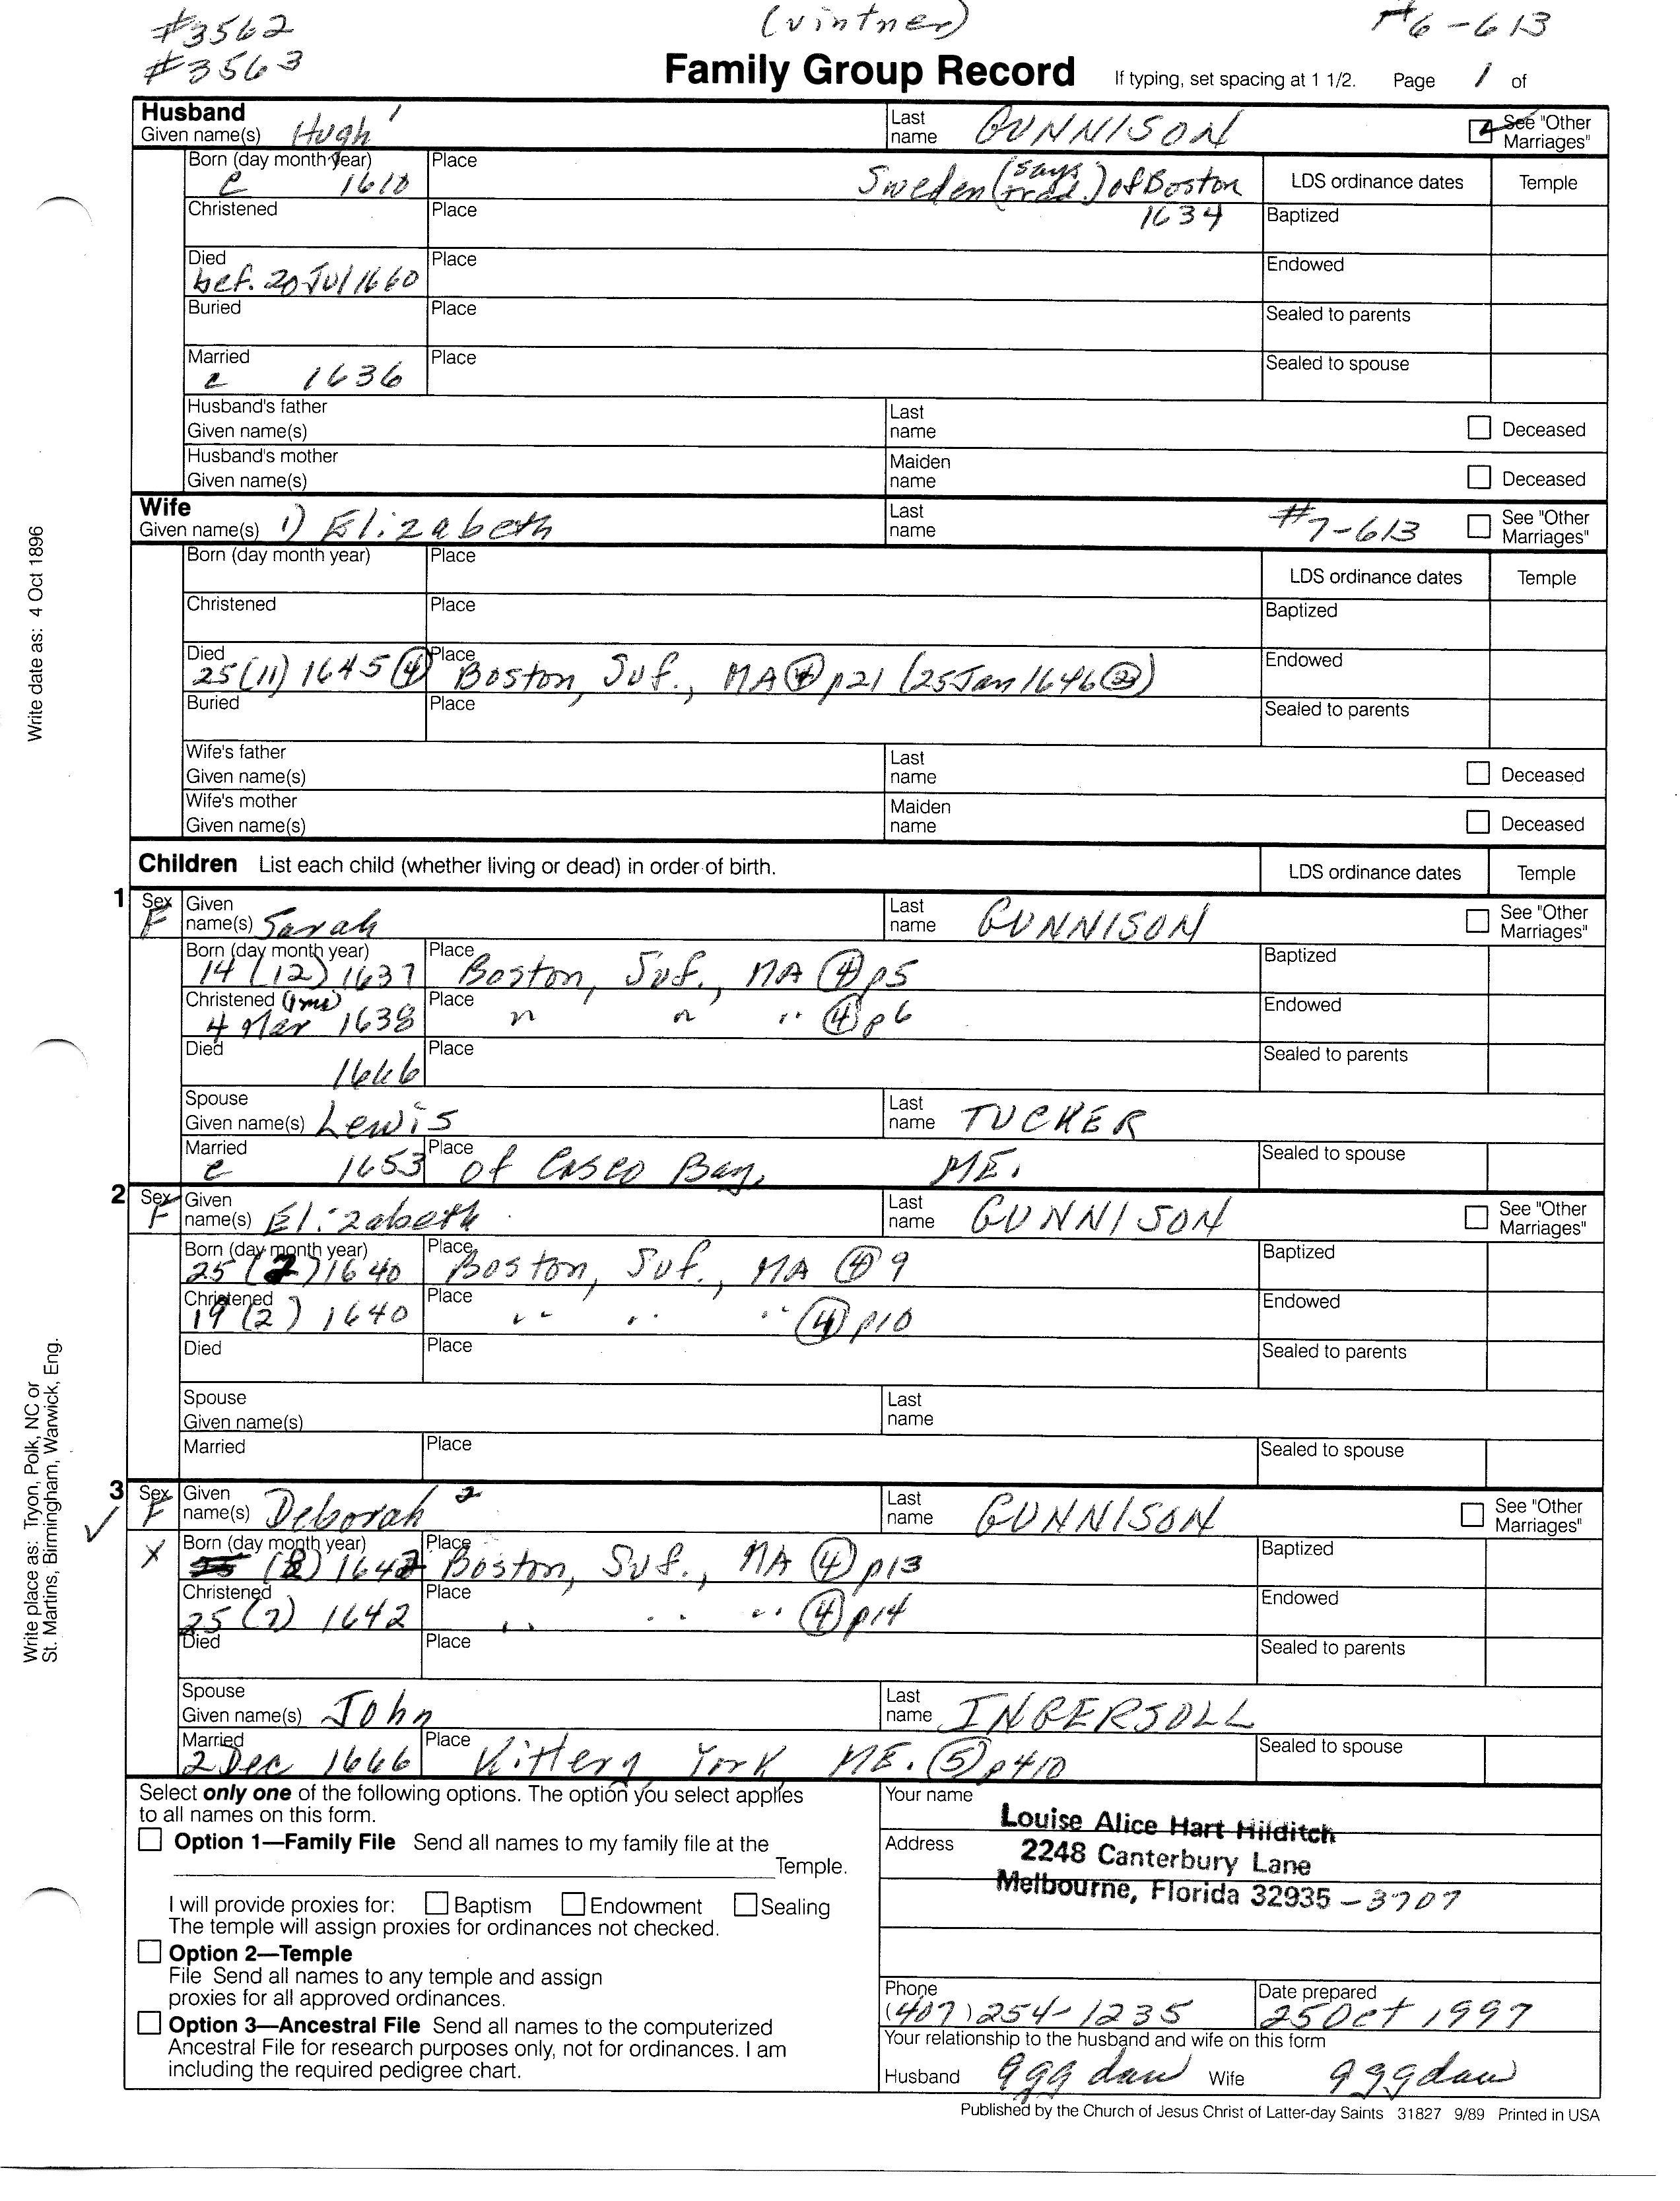 #3562 (vintner) #6-613
#3563
Family Group Record If typing, set spacing at 1 1/2. Page 1 of
Husband
Given name(s) Hugh 1 Last name GUNNISON See "Other Marriages"
Born (day month year) c 1610 Place Sweden (says trad.) of Boston 1634 LDS ordinance dates Temple
Christened Place Baptized
Died bef. 20 Jul 1660 Place Endowed
Buried Place Sealed to parents
Married c 1636 Place Sealed to spouse
Husband's father Given name(s) Last name Deceased
Husband's mother Given name(s) Maiden name Deceased
Wife
Given name(s) 1) Elizabeth Last name #7-613 See "Other Marriages"
Born (day month year) Place LDS ordinance dates Temple
Christened Place Baptized
Died 25 (11) 1645 (4) Place Boston, Suf., MA (4) p21 (25 Jan 1646 (23)) Endowed
Buried Place Sealed to parents
Wife's father Given name(s) Last name Deceased
Wife's mother Given name(s) Maiden name Deceased
Children List each child (whether living or dead) in order of birth. LDS ordinance dates Temple
1 Sex F Given name(s) Sarah Last name GUNNISON See "Other Marriages"
Born (day month year) 14 (12) 1637 Place Boston, Suf., MA (4) p5 Baptized
Christened 4 Mar 1638 Place " " " (4) p6 Endowed
Died 1666 Place Sealed to parents
Spouse Given name(s) Lewis Last name TUCKER
Married c 1653 Place of Casco Bay, ME. Sealed to spouse
2 Sex F Given name(s) Elizabeth Last name GUNNISON See "Other Marriages"
Born (day month year) 25 (2) 1640 Place Boston, Suf., MA (4) 9 Baptized
Christened 19 (2) 1640 Place " " " (4) p10 Endowed
Died Place Sealed to parents
Spouse Given name(s) Last name
Married Place Sealed to spouse
3 Sex F Given name(s) Deborah 2 Last name GUNNISON See "Other Marriages"
X Born (day month year) (8) 1642 Place Boston, Suf., MA (4) p13 Baptized
Christened 25 (7) 1642 Place " " " (4) p14 Endowed
Died Place Sealed to parents
Spouse Given name(s) John Last name INGERSOLL
Married 2 Dec 1666 Place Kittery York ME. (5) p410 Sealed to spouse
Select only one of the following options. The option you select applies
to all names on this form.
Option 1—Family File Send all names to my family file at the
Temple.
I will provide proxies for: Baptism Endowment Sealing
The temple will assign proxies for ordinances not checked.
Option 2—Temple
File Send all names to any temple and assign
proxies for all approved ordinances.
Option 3—Ancestral File Send all names to the computerized
Ancestral File for research purposes only, not for ordinances. I am
including the required pedigree chart.
Your name Louise Alice Hart Hilditch
Address 2248 Canterbury Lane
Melbourne, Florida 32935 -3707
Phone (407) 254-1235 Date prepared 25 Oct 1997
Your relationship to the husband and wife on this form
Husband 9gg dau Wife 9ggdau
Published by the Church of Jesus Christ of Latter-day Saints 31827 9/89 Printed in USA
Write date as: 4 Oct 1896
Write place as: Tryon, Polk, NC or
St. Martins, Birmingham, Warwick, Eng.